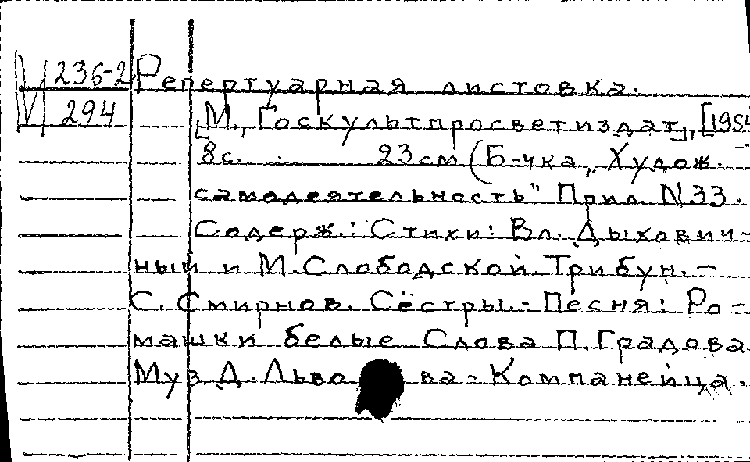 V 236-2 Репертуарная листовка.
294 [М., Госкультпросветиздат], [1954
8с. 23см (Б-чка „Худож.
самодеятельность" Прил. N33.
Содерж.: Стихи: Вл. Дыхович-
ный и М. Слободской. Трибун. -
С. Смирнов. Сёстры. - Песня: Ро-
машки белые Слова П. Градова
Муз Д. Льво ва-Компанейца.